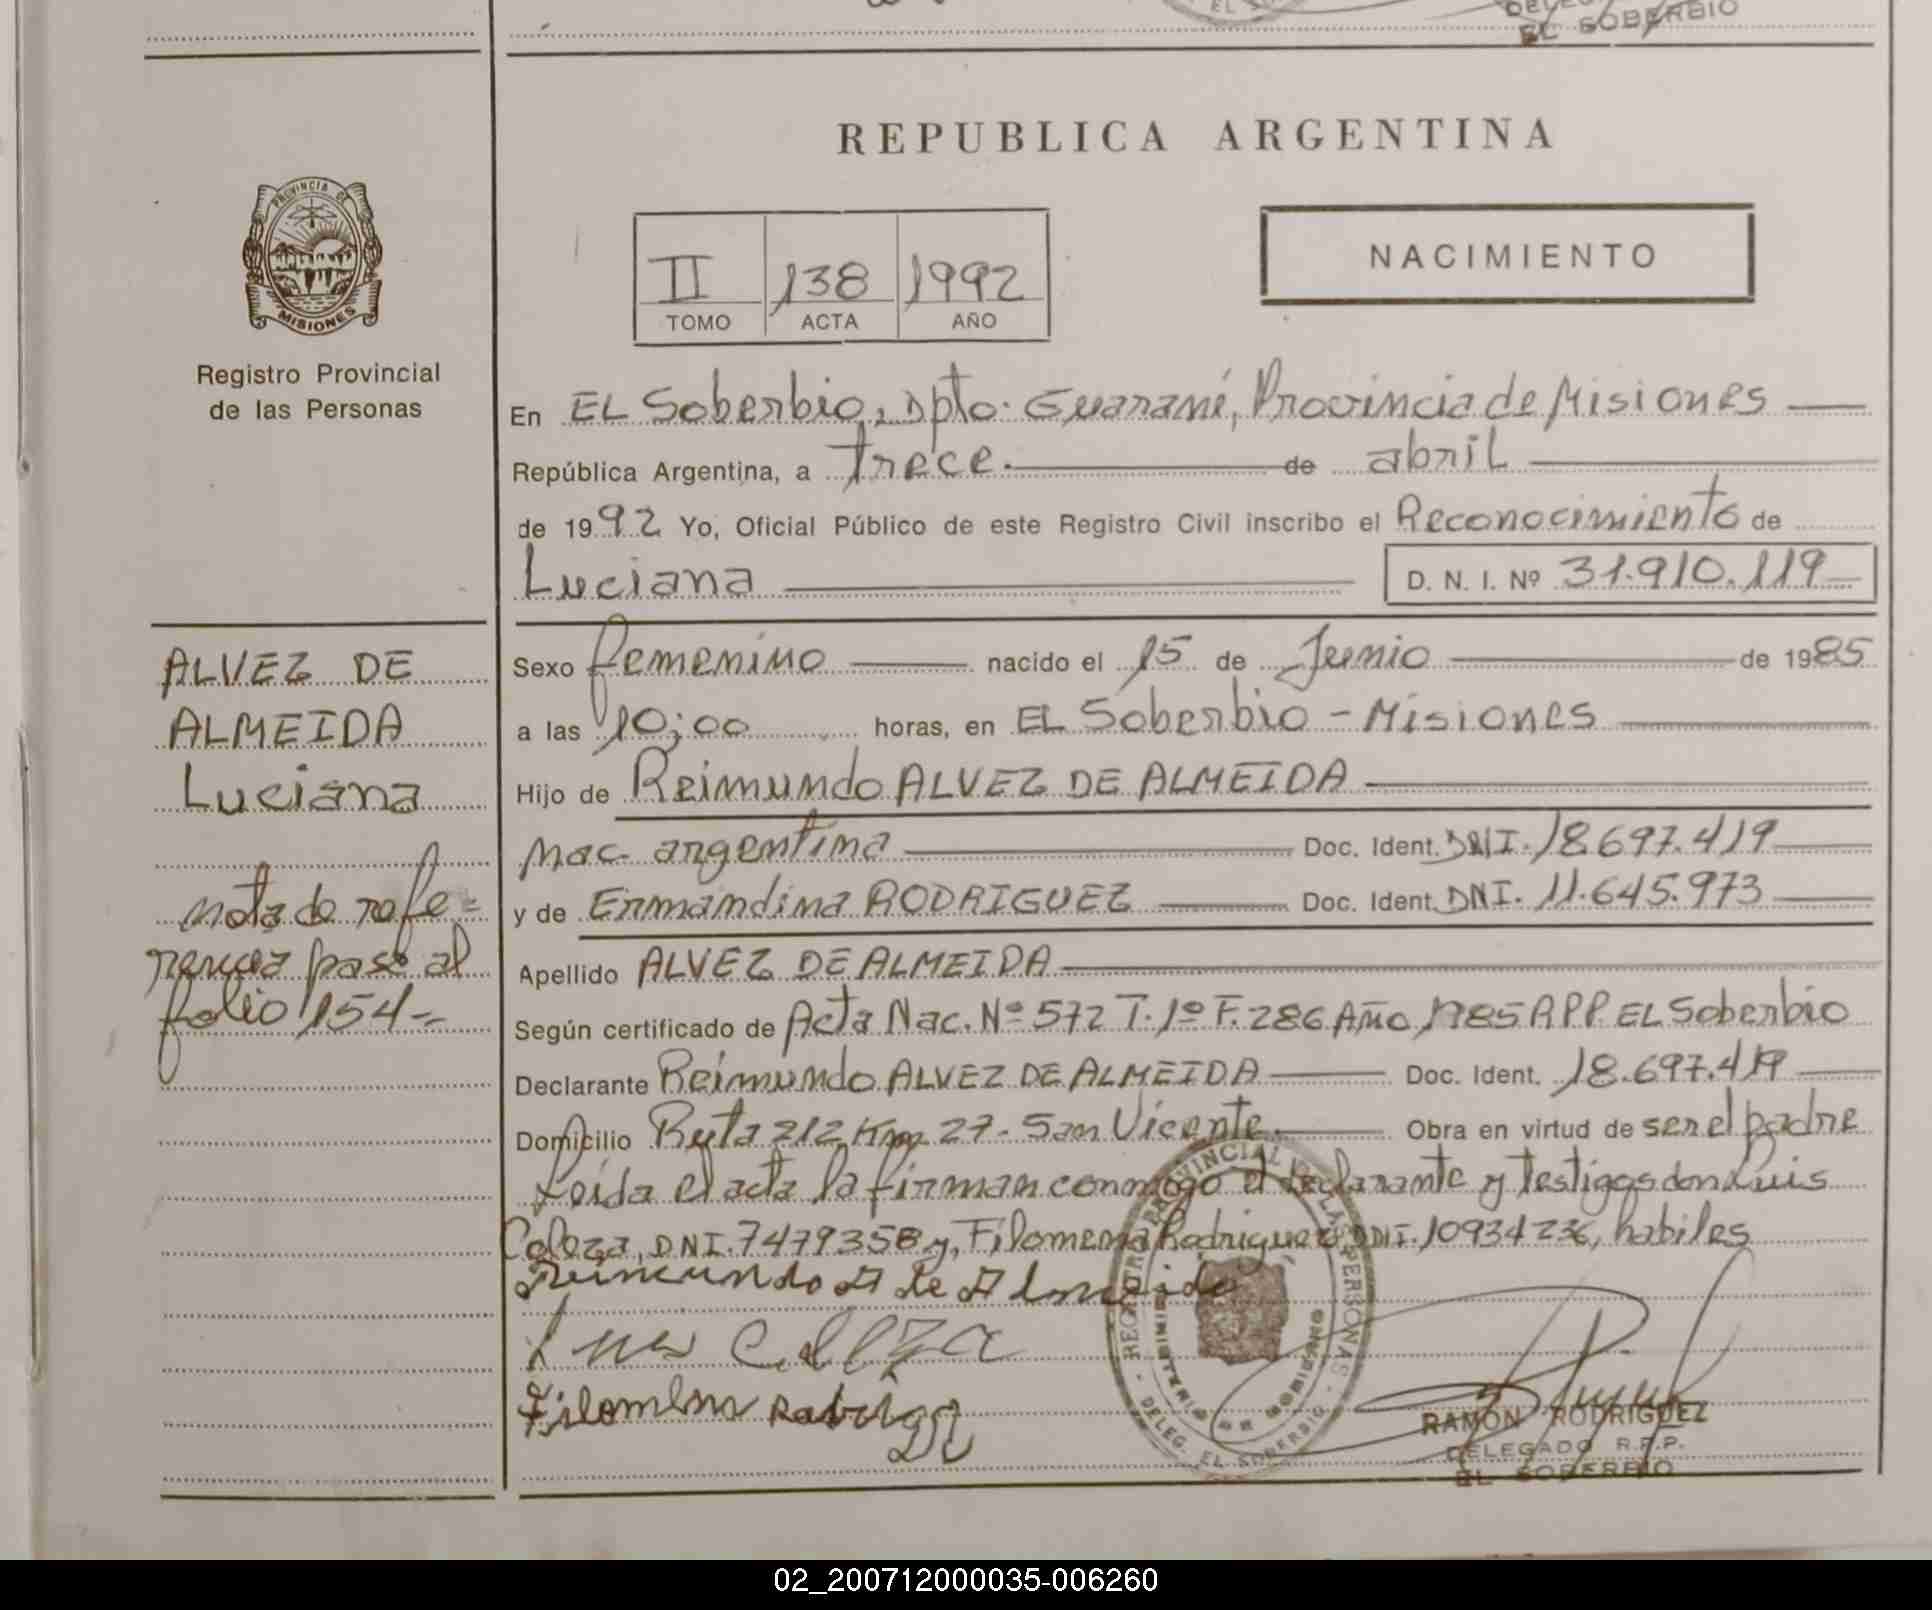 EL SOBERBIO
PROVINCIA DE
MISIONES
Registro Provincial
de las Personas
REPUBLICA ARGENTINA
II 138 1992
TOMO ACTA AÑO
NACIMIENTO
En EL Soberbio, Dpto. Guaraní, Provincia de Misiones
República Argentina, a Trece de abril
de 1992 Yo, Oficial Público de este Registro Civil inscribo el Reconocimiento de
Luciana D. N. I. Nº 31.910.119
Sexo femenino nacido el 15 de Junio de 1985
a las 10;00 horas, en EL Soberbio - Misiones
Hijo de Reimundo ALVEZ DE ALMEIDA
Nac. argentina Doc. Ident. DNI. 18.697.419
y de Ermandina RODRIGUEZ Doc. Ident. DNI. 11.645.973
Apellido ALVEZ DE ALMEIDA
Según certificado de Acta Nac. Nº 572 T. 1º F. 286 Año 1985 RPP. EL Soberbio
Declarante Reimundo ALVEZ DE ALMEIDA Doc. Ident. 18.697.419
Domicilio Ruta 212 Km 27 - San Vicente. Obra en virtud de ser el padre
Leída el acta la firman conmigo el declarante y testigos don Luis
Coloza, DNI. 7479358 y, Filomena Rodriguez DNI. 10934236, habiles
Reimundo A de Almeida
Filomena Rodrigez
REGISTRO PROVINCIAL DE LAS PERSONAS
MINISTERIO DE GOBIERNO
DELEG. EL SOBERBIO
RAMON RODRIGUEZ
DELEGADO R.P.P.
EL SOBERBIO
ALVEZ DE
ALMEIDA
Luciana
nota de refe=
rencia paso al
folio 154-
02_200712000035-006260